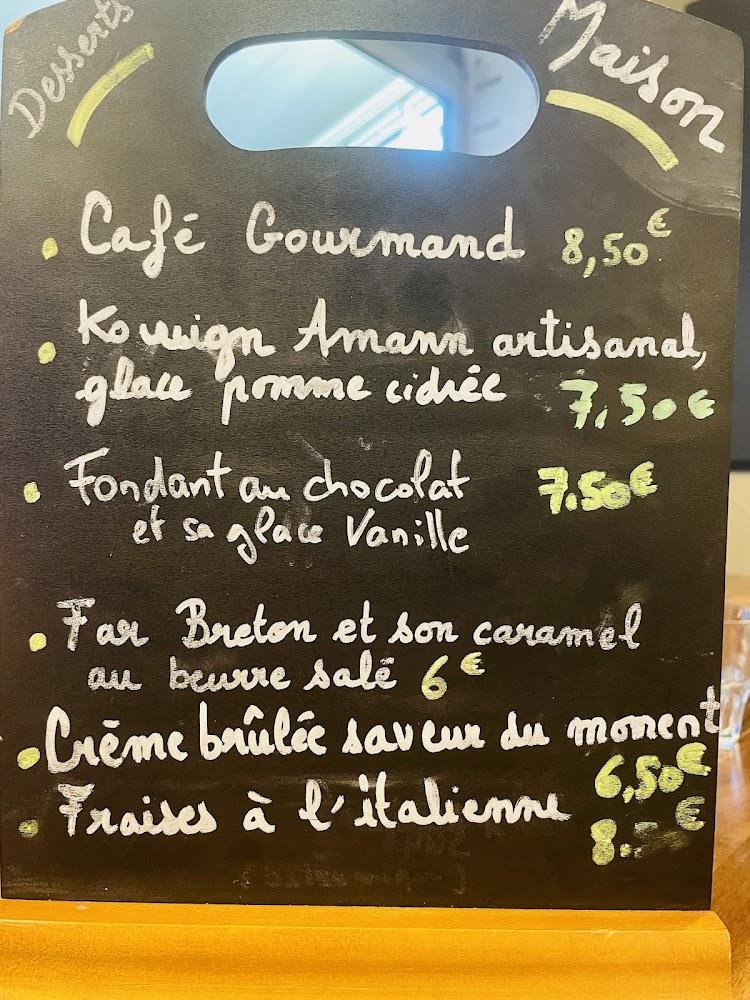 Desserts Maison
Café Gourmand 8,50€
Kouign Amann artisanal,
glace pomme cidrée 7,50€
Fondant au chocolat 7.50€
et sa glace Vanille
Far Breton et son caramel
au beurre salé 6€
Crème brûlée saveur du moment
6,50€
Fraises à l'italienne